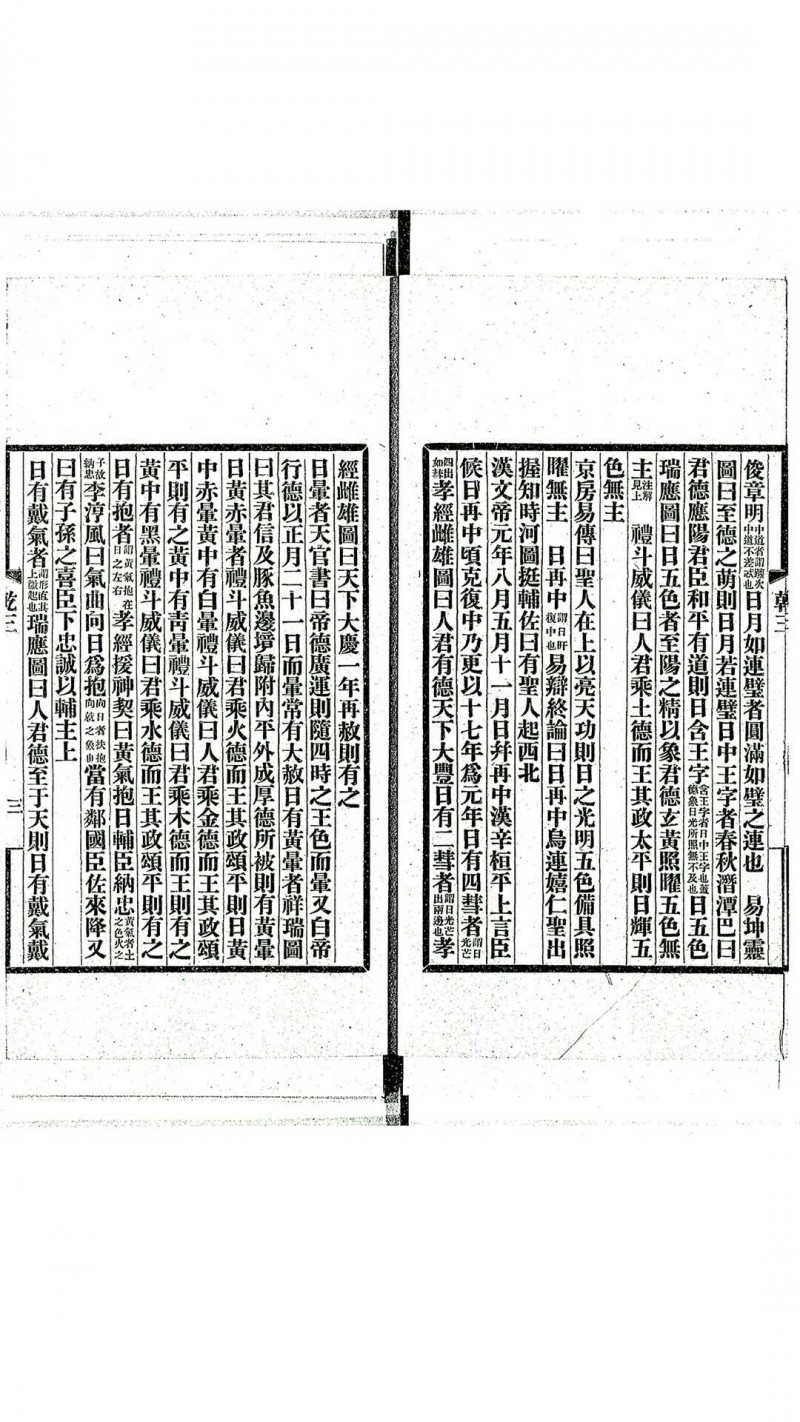 俊章明中道者謂躔次中道不差忒也日月如連璧者圓滿如璧之連也　易坤靈
圖曰至德之萌則日月若連璧日中王字者春秋潛潭巴曰
君德應陽君臣和平有道則日含王字含王字者日中王字也蓋德象日光所照無不及也日五色
瑞應圖曰日五色者至陽之精以象君德玄黃照曜五色無
主注解見上　禮斗威儀曰人君乘土德而王其政太平則日輝五
色無主
京房易傳曰聖人在上以亮天功則日之光明五色備具照
曜無主　日再中謂日旰復中也易辯終論曰日再中烏連嬉仁聖出
握知時河圖挺輔佐曰有聖人起西北
漢文帝元年八月五月十一月日幷再中漢辛桓平上言臣
候日再中頃克復中乃更以十七年爲元年日有四彗者謂日光芒
四出如彗孝經雌雄圖曰人君有德天下大豐日有二彗者謂日光芒出兩邊也孝
乾三
經雌雄圖曰天下大慶一年再赦則有之
日暈者天官書曰帝德廣運則隨四時之王色而暈又白帝
行德以正月二十一日而暈常有大赦日有黃暈者祥瑞圖
曰其君信及豚魚邊壃歸附內平外成厚德所被則有黃暈
日黃赤暈者禮斗威儀曰君乘火德而王其政頌平則日黃
中赤暈黃中有白暈禮斗威儀曰人君乘金德而王其政頌
平則有之黃中有靑暈禮斗威儀曰君乘木德而王則有之
黃中有黑暈禮斗威儀曰君乘水德而王其政頌平則有之
日有抱者謂黃氣抱在日之左右孝經援神契曰黃氣抱日輔臣納忠黃氣者土之色火之
子故納忠李淳風曰氣曲向日爲抱向日者扶抱向就之象也當有鄰國臣佐來降又
曰有子孫之喜臣下忠誠以輔主上
日有戴氣者謂形直其上微起也瑞應圖曰人君德至于天則日有戴氣戴
乾三
三